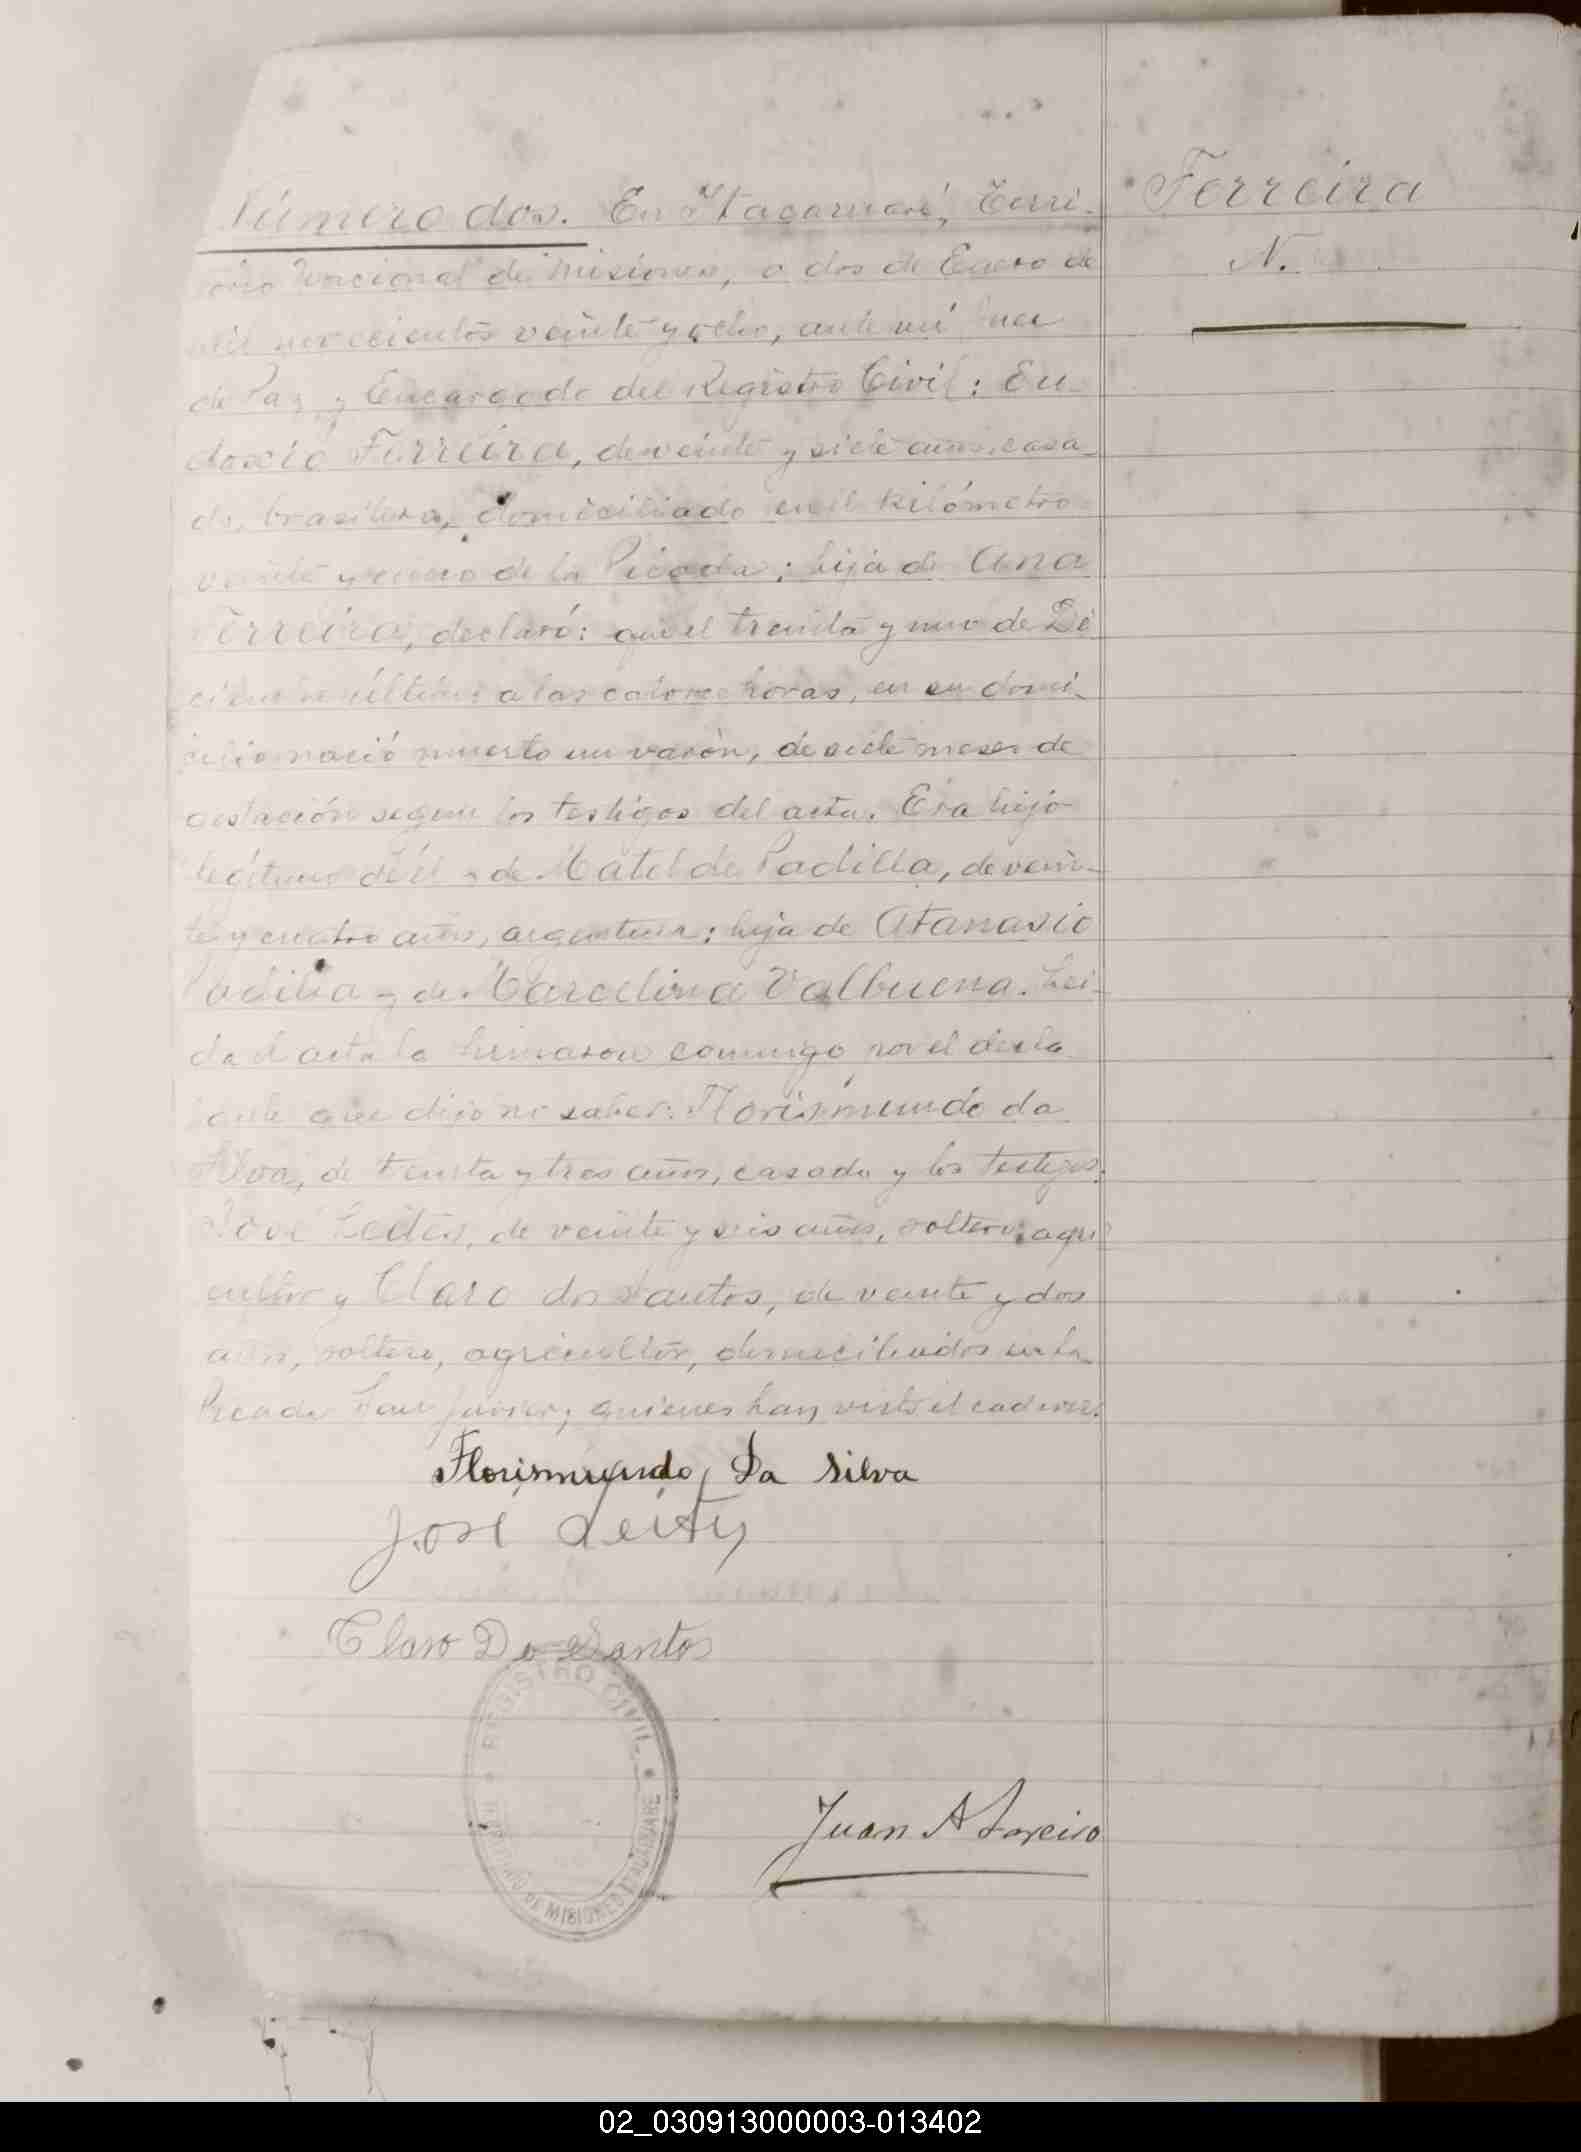 Número dos. En Itacaruaré, Terri-
torio Nacional de Misiones, a dos de Enero de
mil novecientos veinte y ocho, ante mí Juez
de Paz y Encargado del Registro Civil: Eu-
doscio Ferreira, de veinte y siete años, casa-
do, brasilero, domiciliado en el kilómetro
veinte y cinco de la Picada; hijo de Ana
Ferreira, declaró: que el treinta y uno de Di
ciembre último a las catorce horas, en su domi-
cilio nació muerto un varón, de siete meses de
gestación segun los testigos del acta. Era hijo
legítimo de él y de Matilde Padilla, de vein-
te y cuatro años, argentina; hija de Atanasio
Padilla y de Marcelina Valbuena. Lei-
da el acta la firmaron conmigo por el decla
rante que dijo no saber: Florismundo da
Silva, de treinta y tres años, casado y los testigos:
José Leites, de veinte y seis años, soltero, agri
cultor y Claro dos Santos, de veinte y dos
años, soltero, agricultor, domiciliados en la
Picada San Javier, quienes han visto el cadaver.
Florismundo Da Silva
José Leites
Claro Do Santos
REGISTRO CIVIL
TERRITORIO DE MISIONES ITACARUARE
Juan A
Ferreira
N.
02_030913000003-013402